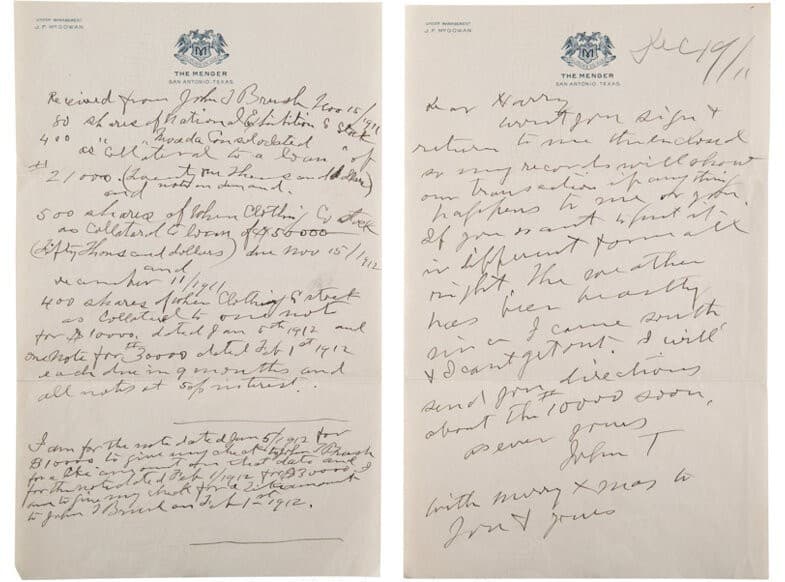 UNDER MANAGEMENT
J. F. McGOWAN
THE MENGER
SAN ANTONIO, TEXAS.
Received from John T Brush Nov 15/1911
80 shares of National Exhibition Co Stock
400 " " Nevada Consolidated "
as collateral to a loan of
$21000. (Twenty one thousand dollars)
and note on demand.
500 shares of When Clothing Co stock
as collateral to loan of $50000
(Fifty thousand dollars) due Nov 15/1912
and
December 11/1911
400 shares of When Clothing Co stock
as collateral to one note
for $10000. dated Jan 5th 1912 and
one note for 30000 dated Feb 1st 1912
each due in 9 months and
all notes at 5% interest.
I am for the note dated Jan 5/1912 for
$10000 to give my check to John T Brush
for a like amount on that date and
for the note dated Feb 1/1912 for $30000 I
am to give my check for a like amount
to John T Brush on Feb 1st 1912.
UNDER MANAGEMENT
J. F. McGOWAN
THE MENGER
SAN ANTONIO, TEXAS.
Dec 19/11
Dear Harry
Wont you sign &
return to me the enclosed
so my records will show
our transaction if anything
happens to me or you.
If you want to put it
in different form all
right. The weather
has been beastly
since I came south
& I cant get out. I will
send you directions
about the $10000 soon.
as ever yours
John T
with merry Xmas to
you & yours